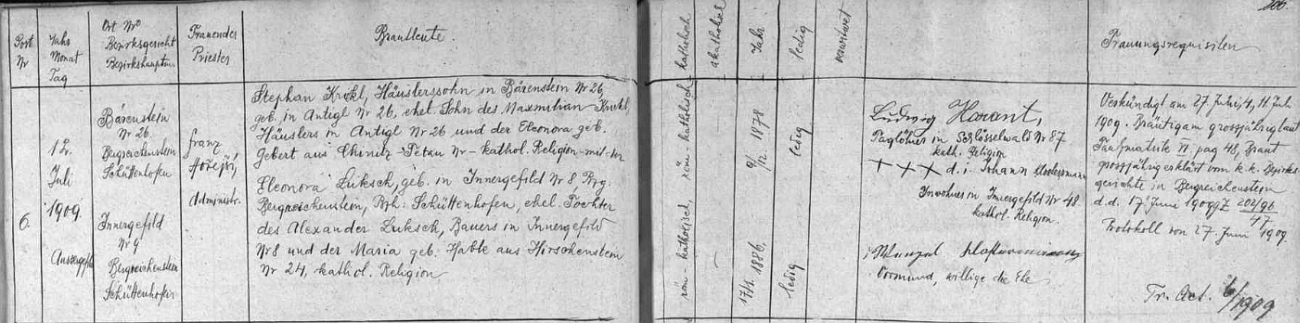 206.
Post Nr
Jahr Monat Tag
Ort Nro Bezirksgericht Bezirkshauptm
Trauender Priester
Brautleute.
röm-katholisch
akatholisch
Jahr.
ledig
verwitwet
Trauungsrequisiten
6.
12.
Juli
1909.
Bärenstein
Nr 26.
Bergreichenstein
Schüttenhofen
Innergefild
Nr 9
Bergreichenstein
Schüttenhofen
Franz
Administr.
Stephan Krokl, Häuslerssohn in Bärenstein Nr 26,
geb. in Antigl Nr 26, ehel. Sohn des Maxmilian Krokl,
Häuslers in Antigl Nr 26 und der Eleonora geb.
Gebert aus Chinitz-Tetau Nr – kathol. Religion
Eleonora Luksch, geb. in Innergefild Nr 8, Bzg.
Bergreichenstein, Bzh. Schüttenhofen, ehel. Tochter
des Alexander Luksch, Bauers in Innergefild
Nr 8 und der Maria geb. aus Hirschenstein
Nr 24, kathol. Religion
röm-katholisch
1878
ledig
röm-katholisch,
17/1. 1886.
ledig
Ludwig
Taglöhner in Schlösselwald Nr 87
kath. Religion
+++ d. i. Johann
Inwohner in Innergefild Nr 48
kathol. Religion.
Vormund, willige die Ehe
Verkündigt am 27. Juni, 4., 11. Juli
1909. Bräutigam grossjährig laut
Taufmatrik pag 48, Braut
grossjährig erklärt vom k.k. Bezirks-
gerichte in Bergreichenstein
d.d. 17. Juni 1909
Protokoll von 27. Juni 1909.
Tr. Act. 6/1909